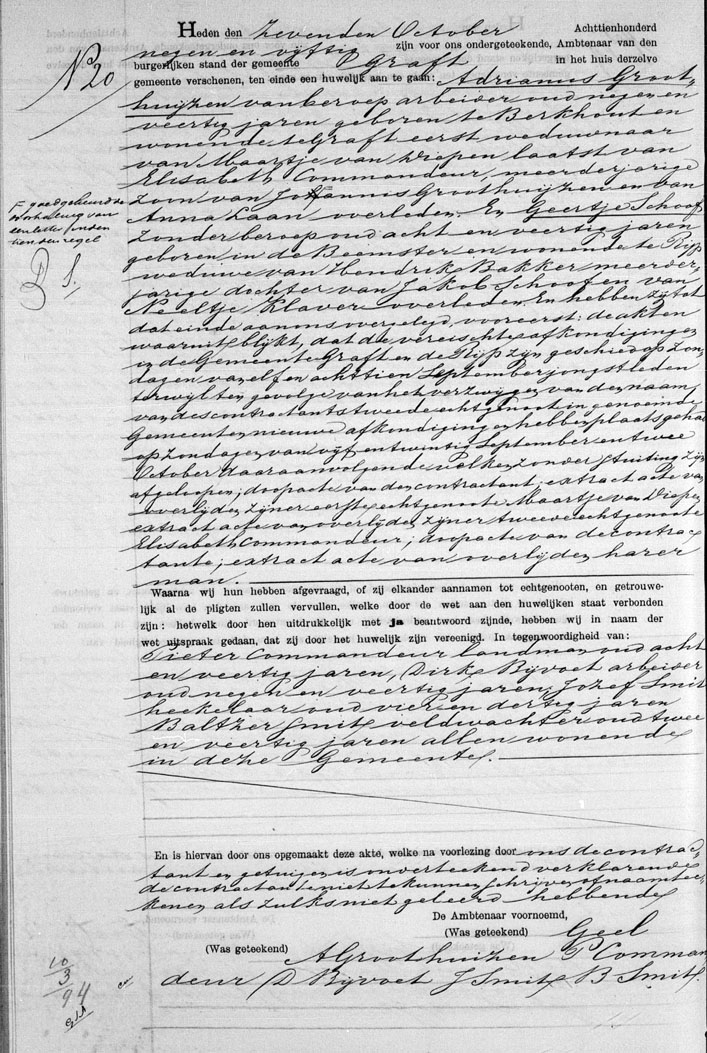 Heden den Zevenden October Achttienhonderd
negen en vijftig zijn voor ons ondergeteekende, Ambtenaar van den
burgerlijken stand der gemeente Graft in het huis derzelve
No 20
gemeente verschenen, ten einde een huwelijk aan te gaan: Adrianus Groot-
huijzen van beroep arbeider oud negen en
veertig jaren geboren te Berkhout en
wonende te Graft eerst weduwnaar
van Maartje van Diepen laatst van
Elisabeth Commandeur, meerderjarige
zoon van Johannis Groothuijzen en van
Anna Laan overleden. En Geertje Schoof
zonder beroep oud acht en veertig jaren
geboren in de Beemster en wonende te Rijp
weduwe van Hendrik Bakker meerder-
jarige dochter van Jakob Schoof en van
Neeltje Klaver overleden. En hebben zij tot
dat einde aan ons overgelegd, voor eerst: de akten
waaruit blijkt, dat de vereischte afkondigingen
in de Gemeente Graft en de Rijp zijn geschied op Zon-
dagen van elf en achttien September jongstleden
terwijl ten gevolge van het verzwijgen van den naam
van des contractants tweede echtgenoot in genoemde
Gemeenten nieuwe afkondigingen hebben plaats gehad
op Zondagen van vijf en twintig September en twee
October daaraanvolgende welke zonder stuiting zijn
afgeloopen; doopacte van den contractant; extract acte van
overlijden zijner eerste echtgenoote Maartje van Diepen
extract acte van overlijden zijner tweede echtgenoote
Elisabeth Commandeur; doopacte van de contrac
tante; extract acte van overlijden harer
man.
goedgekeurd de
doorhaling van
een letter in den
tienden regel
Waarna wij hun hebben afgevraagd, of zij elkander aannamen tot echtgenooten, en getrouwe-
lijk al de pligten zullen vervullen, welke door de wet aan den huwelijken staat verbonden
zijn: hetwelk door hen uitdrukkelijk met ja beantwoord zijnde, hebben wij in naam der
wet uitspraak gedaan, dat zij door het huwelijk zijn vereenigd. In tegenwoordigheid van:
Pieter Commandeur landman oud acht
en veertig jaren, Dirk Bijvoet arbeider
oud negen en veertig jaren, Jozef Smit
heekelaar oud vier en dertig jaren
Baltzer Smit veldwachter oud twee
en veertig jaren allen wonende
in deze Gemeente.
En is hiervan door ons opgemaakt deze akte, welke na voorlezing door ons de contrac-
tant en getuigen is onderteekend verklarende
de contractante niet te kunnen schrijven of naamtee-
kenen als zulks niet geleerd hebbende
De Ambtenaar voornoemd,
(Was geteekend) Geel
(Was geteekend) A Groothuizen P Comman
deur D Bijvoet J Smit B Smit.
10
3
94